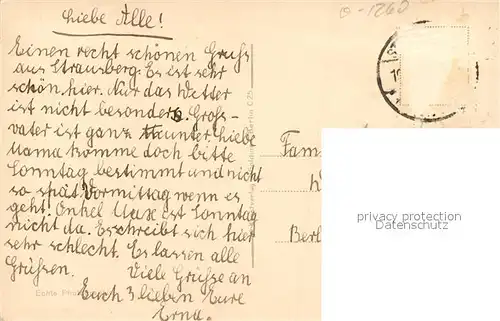 Liebe Alle!
Einen recht schönen Gruß
aus Strausberg. Es ist sehr
schön hier. Nur das Wetter
ist nicht besonders. Groß-
vater ist ganz munter. Liebe
Mama komme doch bitte
Sonntag bestimmt und nicht
so spät. Vormittag wenn es
geht. Onkel Max ist Sonntag
nicht da. Es schreibt sich hier
sehr schlecht. Es lassen alle
Grüßen.
Viele Grüße an
Euch 3 lieben Eure
Erna.
Fam
Berl
privacy protection
Datenschutz